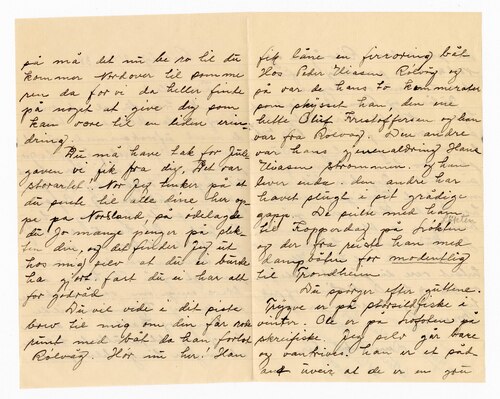 på må det nu be ro til du
kommer Nordover til somme
ren da for vi da heller finde
på noget at give dig som
kan være til en liden erin-
dring
Du må have tak for Jule
gaven vi fik fra dig. Det var
storartet! Nor Jeg tenker på at
du sente til alle dine her op
pe på Nordland, så ødelagde
du jo mange penger på slek
ten din, og det finder Jeg ut
hos mig selv at du ei burde
ha gjort. fort du ei har alt
for godråd
Du vil vide i dit siste
brev til mig om din far rok
punt med båt da han forlot
Rølvåg. Hør nu her! Han
fik låne en firroring båt
Hos Peder Eliasen Rølvåg og
så var de hans to kammerater
som skjuset han, den ene
hette Olif Kristoffersen og han
var fra Rølvåg. Den andre
var hans jevnaldring Hans
Eliasen Strømmen. og han
lever enda. den andre har
havet slugt i sit grådige
gapp. De seilte med han
til Kopperdag på Løkten
og der fra reiste han med
dampbåten for modentlig
til Trondheim
Du spørger efter guttene.
Trygve er på storsildfiske i
vinter. Ole er på Lofoten på
skreifiske. Jeg selv går bare
og vantrives. han er et såt
ant uveir at de er en gru